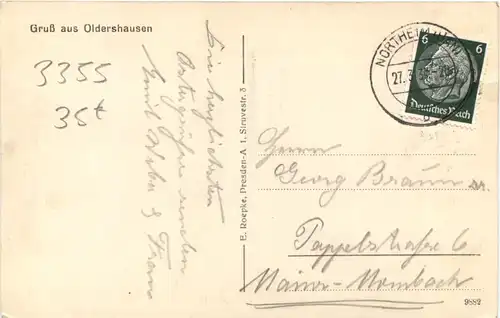 Gruß aus Oldershausen
3355
35t
Die herzlichsten
Ostergrüße senden
Emil Weber & Frau
E. Roepke, Dresden-A 1, Struvestr. 3
NORTHEIM (HAN
27.3
6 6
Deutsches Reich
Herrn
Georg Braun sr.
Pappelstraße 6
Mainz-Mombach
9882